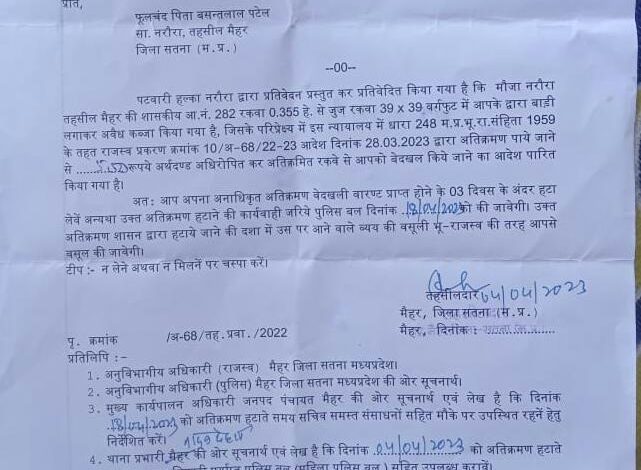 प्रति,
फूलचंद पिता बसन्तलाल पटेल
सा. नरौरा, तहसील मैहर
जिला सतना (म.प्र.)
--00--
पटवारी हल्का नरौरा द्वारा प्रतिवेदन प्रस्तुत कर प्रतिवेदित किया गया है कि मौजा नरौरा
तहसील मैहर की शासकीय आ.नं. 282 रकवा 0.355 हे. से जुज रकवा 39 x 39 वर्गफुट में आपके द्वारा बाडी
लगाकर अवैध कब्जा किया गया है, जिसके परिप्रेक्ष्य में इस न्यायालय में धारा 248 म.प्र.भू.रा.संहिता 1959
के तहत राजस्व प्रकरण क्रमांक 10/अ-68/22-23 आदेश दिनांक 28.03.2023 द्वारा अतिक्रमण पाये जाने
से ........रूपये अर्थदण्ड अधिरोपित कर अतिक्रमित रकवे से आपको बेदखल किये जाने का आदेश पारित
किया गया है।
अतः आप अपना अनाधिकृत अतिक्रमण वेदखली वारण्ट प्राप्त होने के 03 दिवस के अंदर हटा
लेवें अन्यथा उक्त अतिक्रमण हटाने की कार्यवाही जरिये पुलिस बल दिनांक .18/04/2023को की जावेगी। उक्त
अतिक्रमण शासन द्वारा हटाये जाने की दशा में उस पर आने वाले व्यय की वसूली भू-राजस्व की तरह आपसे
वसूल की जावेगी।
टीप :- न लेने अथवा न मिलनें पर चस्पा करें।
तहसीलदार 04/04/2023
मैहर, जिला सतना (म.प्र.)
मैहर, दिनांक
पृ. क्रमांक /अ-68/तह.प्रवा./2022
प्रतिलिपि :-
1. अनुविभागीय अधिकारी (राजस्व) मैहर जिला सतना मध्यप्रदेश।
2. अनुविभागीय अधिकारी (पुलिस) मैहर जिला सतना मध्यप्रदेश की ओर सूचनार्थ।
3. मुख्य कार्यपालन अधिकारी जनपद पंचायत मैहर की ओर सूचनार्थ एवं लेख है कि दिनांक
.18/04/2023 को अतिक्रमण हटाते समय सचिव समस्त संसाधनों सहित मौके पर उपस्थित रहनें हेतु
निर्देशित करें।
4. थाना प्रभारी मैहर की ओर सूचनार्थ एवं लेख है कि दिनांक 04/04/2023 को अतिक्रमण हटाते
पुलिस बल (महिला पुलिस बल) सहित उपलब्ध करावें।